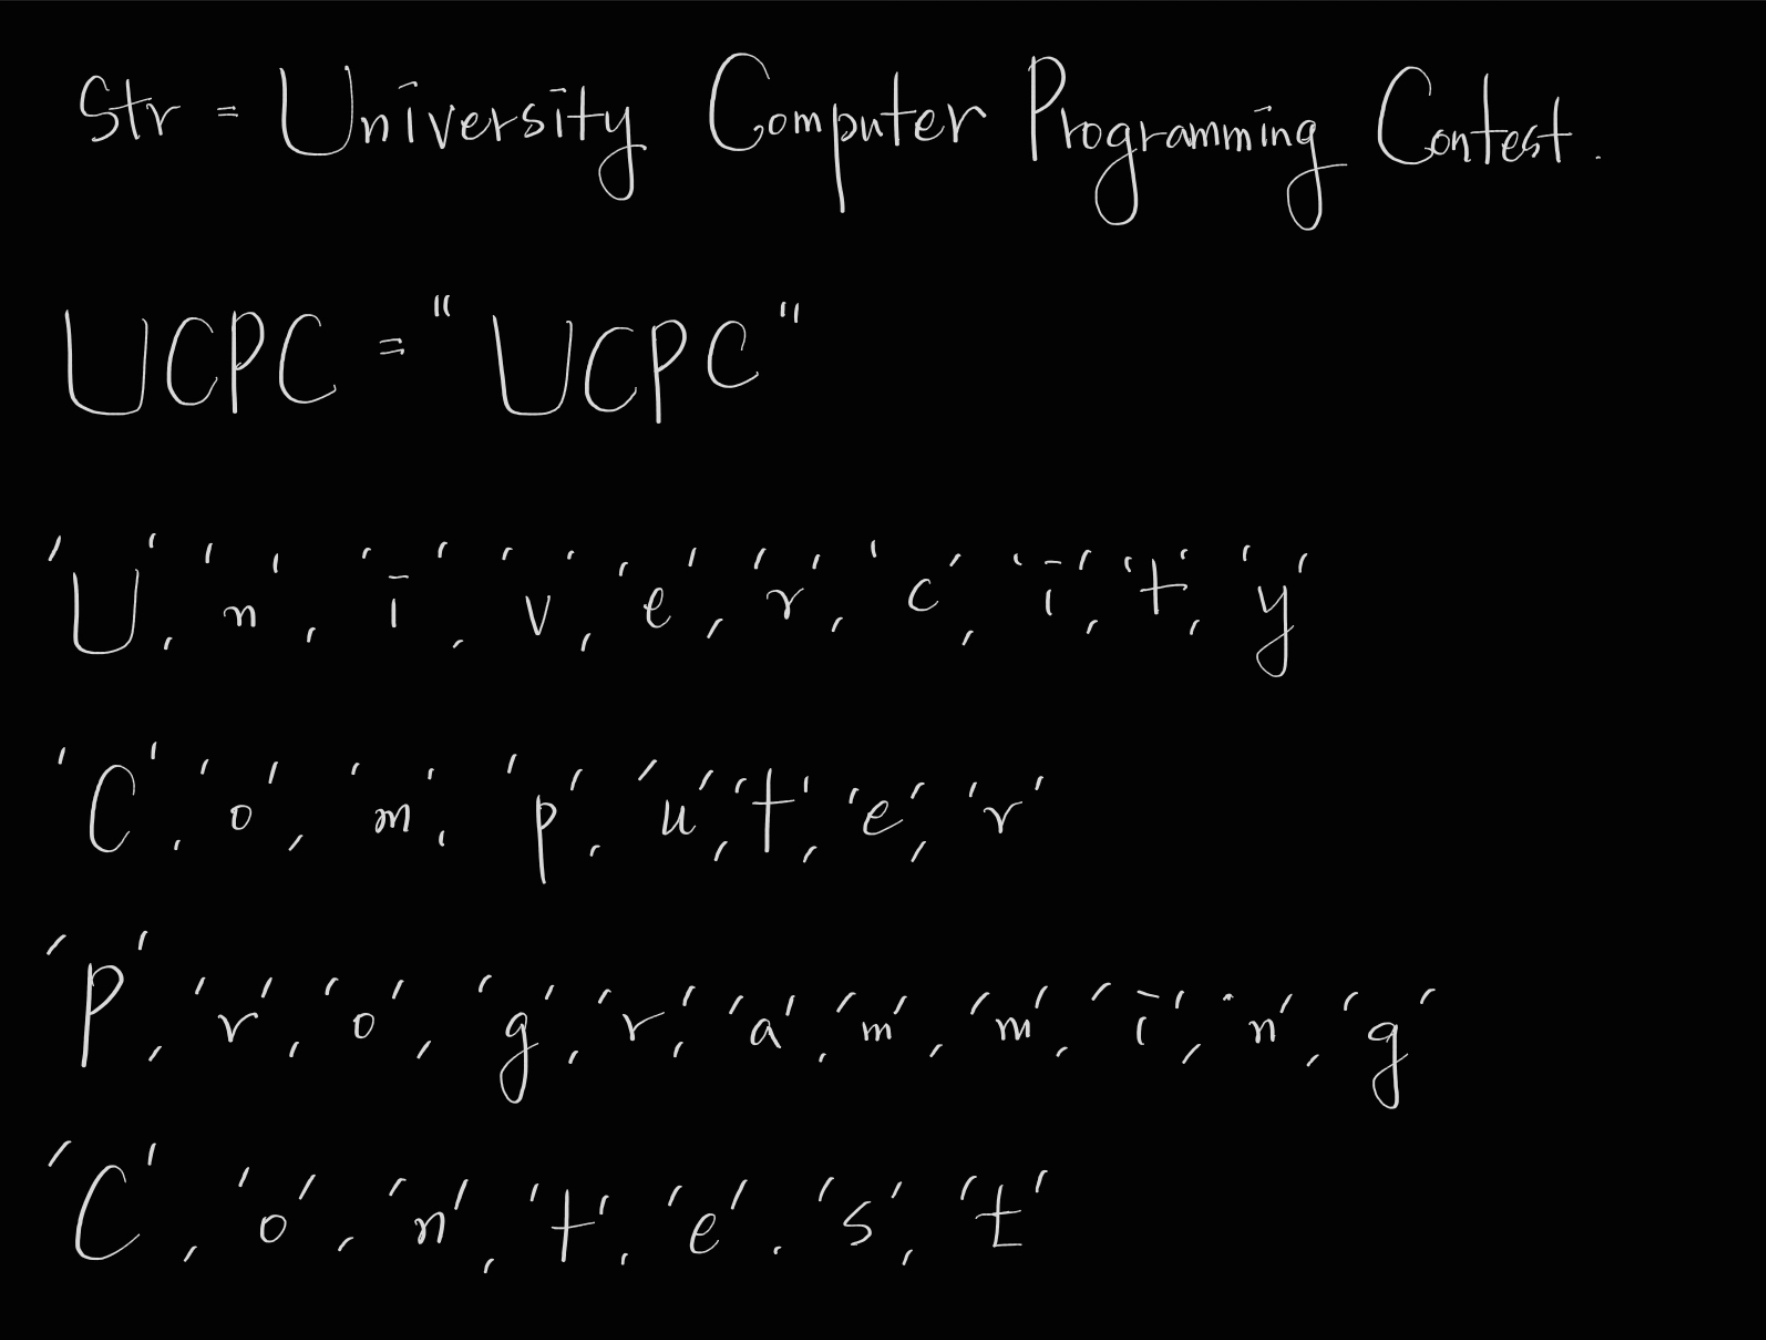 Str = University Computer Programming Contest.
UCPC = "UCPC"
'U', 'n', 'i', 'v', 'e', 'r', 'c', 'i', 't', 'y'
'C', 'o', 'm', 'p', 'u', 't', 'e', 'r'
'P', 'r', 'o', 'g', 'r', 'a', 'm', 'm', 'i', 'n', 'g'
'C', 'o', 'n', 't', 'e', 's', 't'